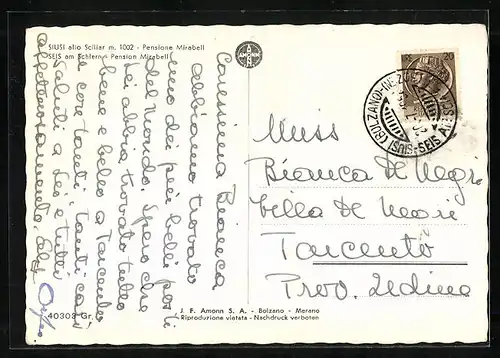 SIUSI allo Sciliar m. 1002 - Pensione Mirabell
SEIS am Schlern - Pension Mirabell
Carissima Bianca
abbiamo trovato
uno dei più belli posti
del mondo. Spero che
Lei abbia trovato tutto
bene e bello a Tarcento
e con tanti, tanti cari
saluti a Lei e tutti
affettuosamente,
40303 Gr.
AMONN
20
(BOLZANO-IN-
SIUSI-SEIS AM SCH
Miss
Bianca de Negri
Villa de
Tarcento
Prov. Udine
J. F. Amonn S. A. - Bolzano - Merano
Riproduzione vietata - Nachdruck verboten